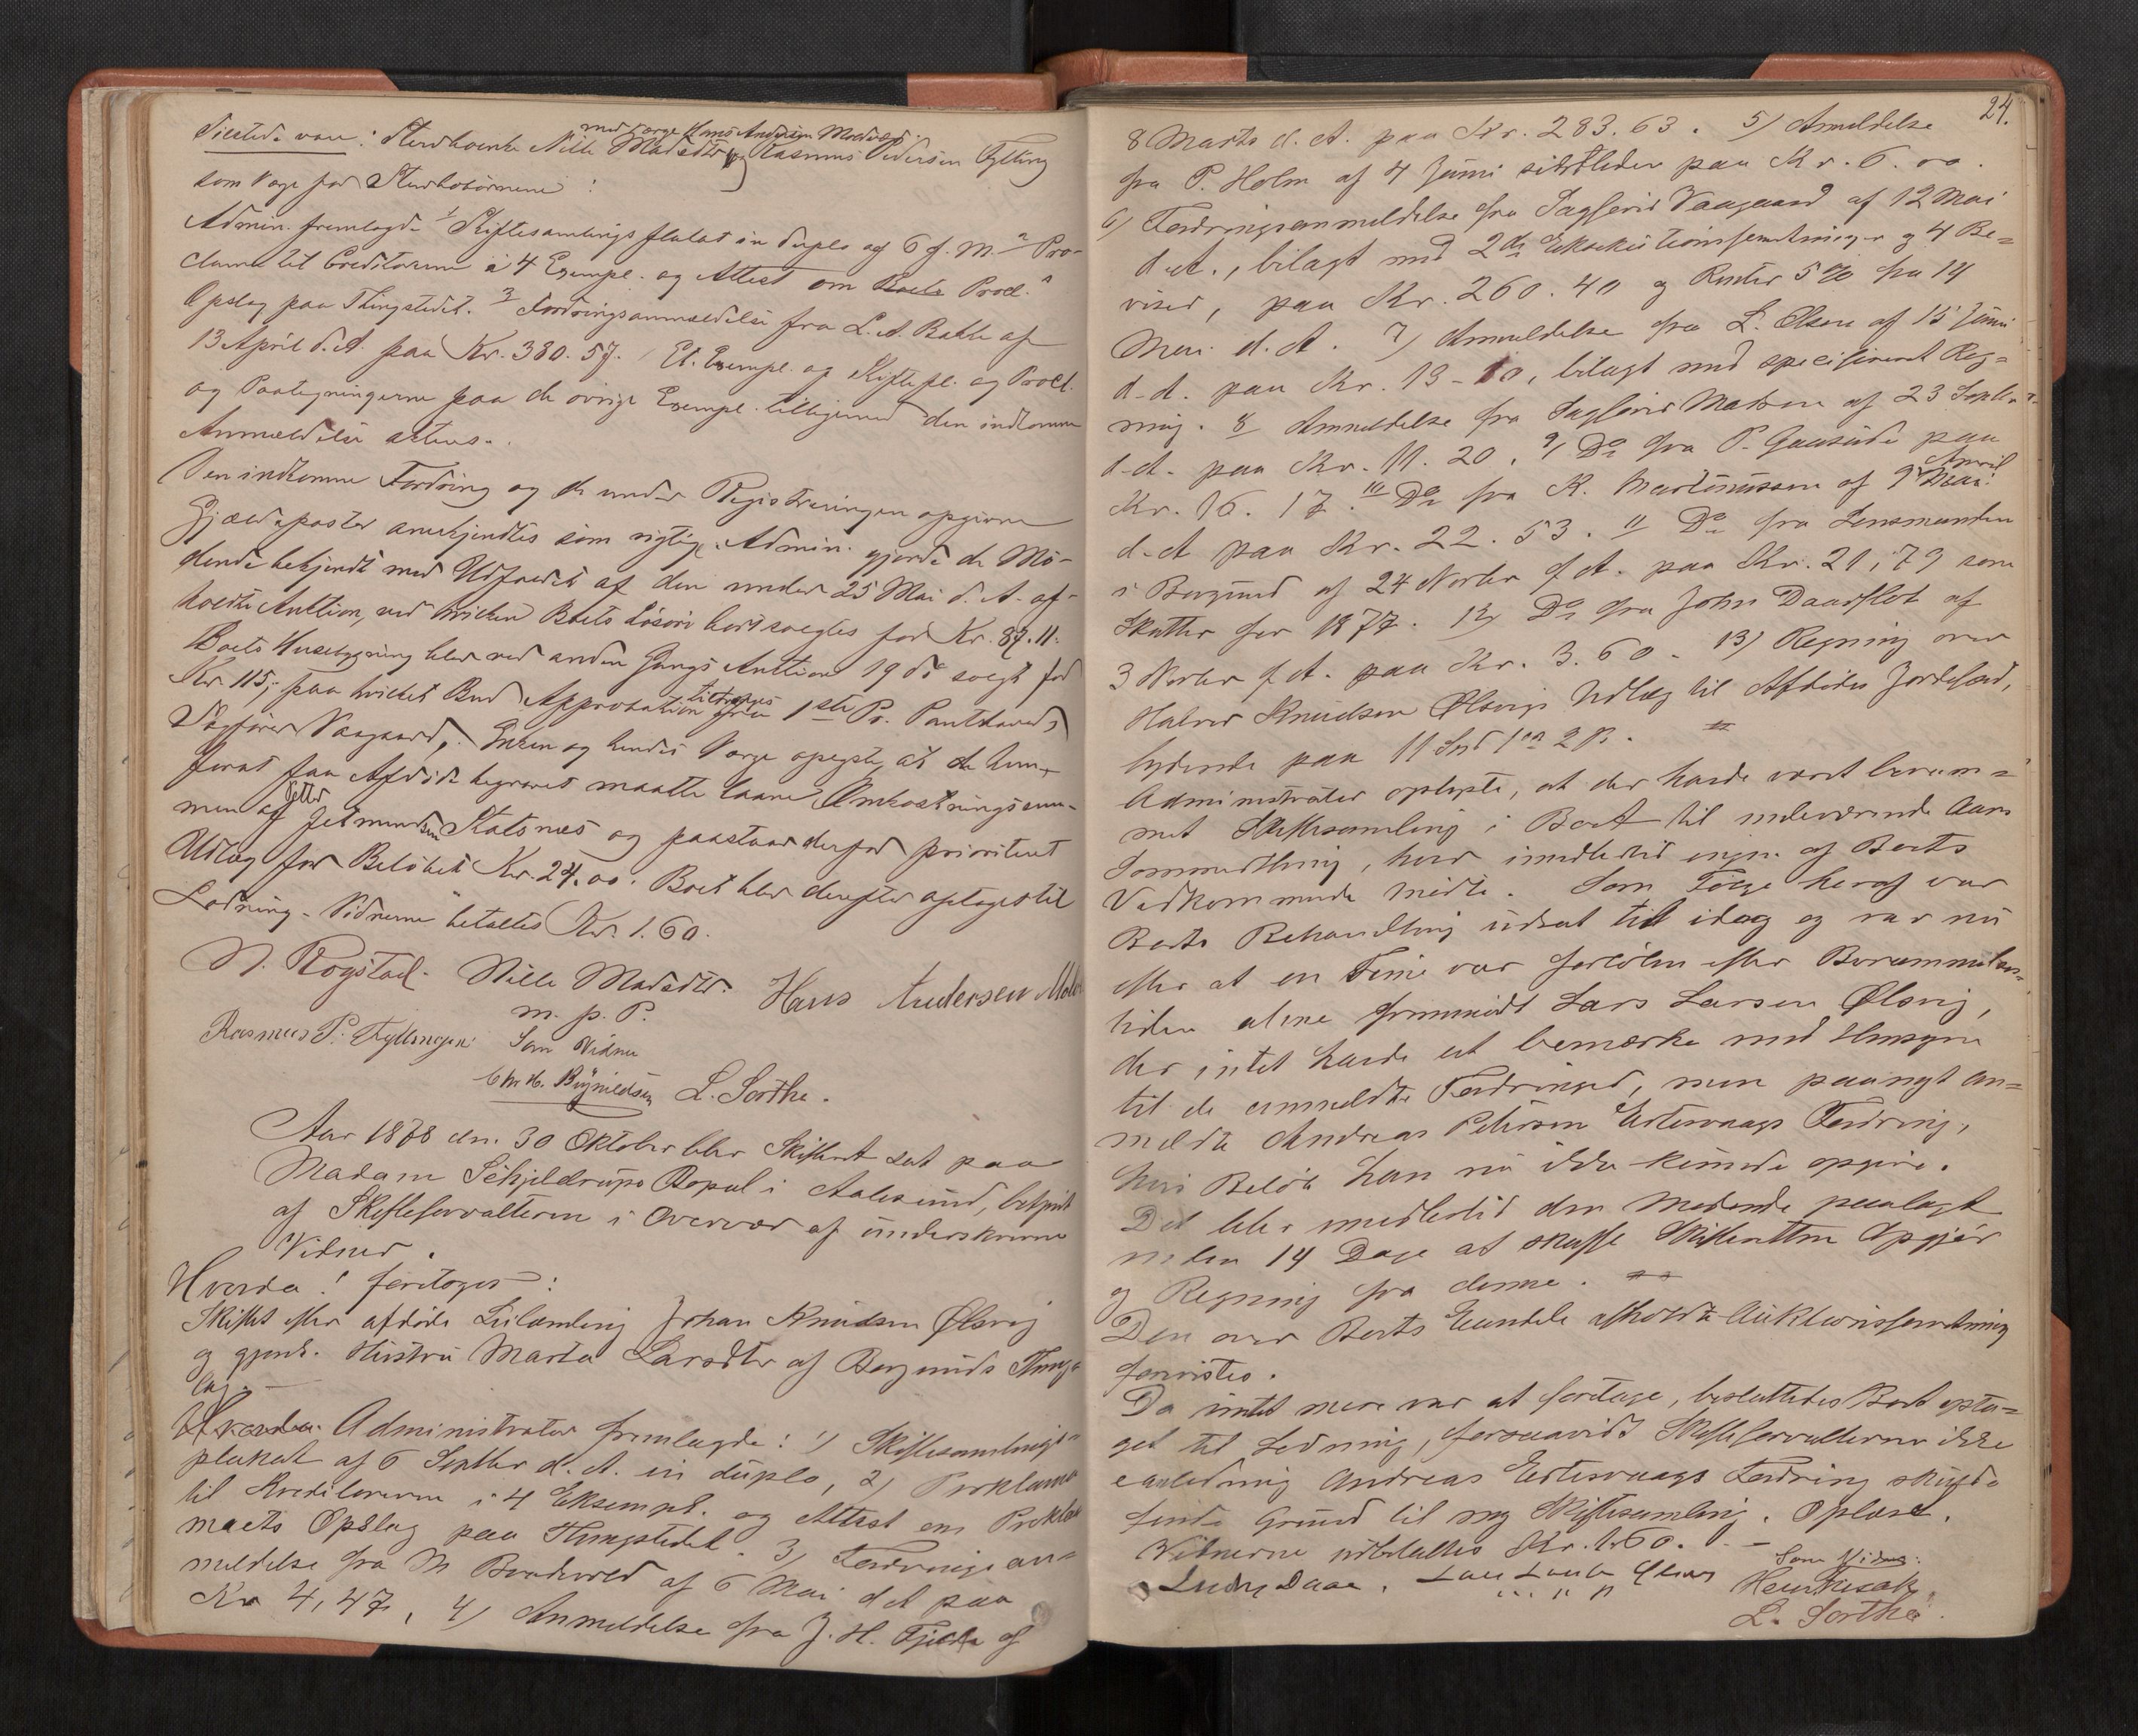 med Verge Hans Andersen Molvær
Tilstede var: Sterboenke Nille Madsdtr og Rasmus Pedersen Fylling
som Verge for Sterbobørnene:
Admin. fremlagde 1/ Skiftesamlingsplakat in duplo af 6 f. M. 2 Pro-
clama til Creditorerne i 4 Exempl. og Attest om Boets Procl.
Opslag paa Thingstedet. 3/ Fordringsanmældelse fra L. A. Bakke af
13 April d. A. paa Kr. 380.57. Et Exempl. af Skiftepl. og Procl.
og Paategningerne paa de øvrige Exempl. tilligemed den indkomne
Anmældelse acteres.
Den indkomne Fordring og de under Registreringen opgivne
Gjældsposter anerkjendtes som rigtige. Admin. gjorde de Mø-
dende bekjendt med Udfaldet af den under 25 Mai d. A. af-
holdte Auktion, ved hvilken Boets Løsøre bortsolgtes for Kr. 87.11.
Boets Husebygning blev ved anden Gangs Auktion 19 ds solgt for
Kr. 115,- paa hvilket Bud Approbation tiltrænges fra 1ste Pr. Panthaver,
Sagfører Vaagaard. Enken og hendes Verge opgav, at de hun
forat faa Afdøde begravet maatte laane Omkostningssum-
men af Petter Jetmundsen Slatsnes og paastaar derfor prioriteret
Udlæg for Beløbet Kr. 24.00. Boet blev derefter optaget til
Lodning. Vidnerne betaltes Kr. 1.60.
N. Rogstad. Nille Madsdtr. Hans Andersen Mol
m. p. P.
Rasmus P. Fyllingen Som Vidner
L. Sorthe.
Aar 1878 den 30 Oktober blev Skifteret sat paa
Madam Schjeldrups Bopæl i Aalesund, betjent
af Skifteforvalteren i Overvær af underskrevne
Vidner.
Hvorda! foretoges:
Skiftet efter afdøde Leilænding Johan Knudsen Ølsvig
og gjenl. Hustru Marta Larsdtr af Borgunds Thing-
lag.-
Hvorda. Administrator fremlagde: 1) Skiftesamlings-
plakat af 6 Septbr d. A. in duplo, 2) Proklama
til Kreditorerne i 4 Eksempl. og Attest om Prokla-
maets Opslag paa Thingstedet. 3) Fordringsan-
meldelse fra M Brudevold af 6 Mai d A paa
Kr 4,47, 4) Anmeldelse fra J. H. Fjelde af
24.
8 Marts d. A. paa Kr. 283.63. 5) Anmeldelse
fra P. Holm af 4 Juni sidstleden paa Kr. 6.00.
6) Fordringsanmeldelse fra Sagfører Vaagaard af 12 Mai
d. A., bilagt med 2de Eksekutionsforretninger og 4 Be=
viser, paa Kr. 260.40 og Renter 5 % fra 14
Mai d. A. 7) Anmeldelse fra L. Olsen af 15 Juni
d. A. paa Kr. 13-10, bilagt med specificeret Reg=
ning. 8 Anmeldelse fra Sagfører Madsen af 23 Septbr
d. A. paa Kr. 11.20. 9/ Do fra P. Gaaseide paa
Kr. 16.17. 10 Do fra K. Martinussen af 9 Mai April
d. A paa Kr. 22.53. 11 Do fra Lensmanden
i Borgund af 24 Novbr f A. paa Kr. 21,79 som
Skatter for 1877. 12) Do fra John Daarflot af
3 Novbr f A. paa Kr. 3.60. 13) Regning over
Halvor Knudsen Ølsvigs Udlæg til Afdødes Jordefærd,
lydende paa 11 Spd 1 ort 2 s.
Administrator oplyste, at der havde været beram=
met Skiftesamling i Boet til indeværende Aars
Sommerthing, hvor imidlertid ingen af Boets
Vedkommende mødte. Som Følge heraf var
Boets Behandling udsat til idag og var nu
efter at en Time var forløben efter Berammelses=
tiden alene fremmødt Lars Larsen Ølsvig,
der intet havde at bemærke med Hensyn
til de anmeldte Fordringer, men paany an=
meldte Andreas Petersen Eidsvaags Fordring,
hvis Beløb han nu ikke kunde opgive.
Det blev imidlertid den Mødende paalagt
inden 14 Dage at skaffe Skifteretten Opgjør
og Regning fra denne.
Den over Boets Eiendele afholdte Auktionsforretning
forevistes.
Da intet mere var at foretage, besluttedes Boet opta=
get til Lodning, forsaavidt Skifteforvalteren ikke
i anledning Andreas Eidsvaags Fordring skulde
finde Grund til ny Skiftesamling. Oplæst.
Vidnerne udbetaltes Kr. 1.60. -
Ludv. Daae. Lars Larsen Ølsvig Som Vidner:
L. Sorthe.